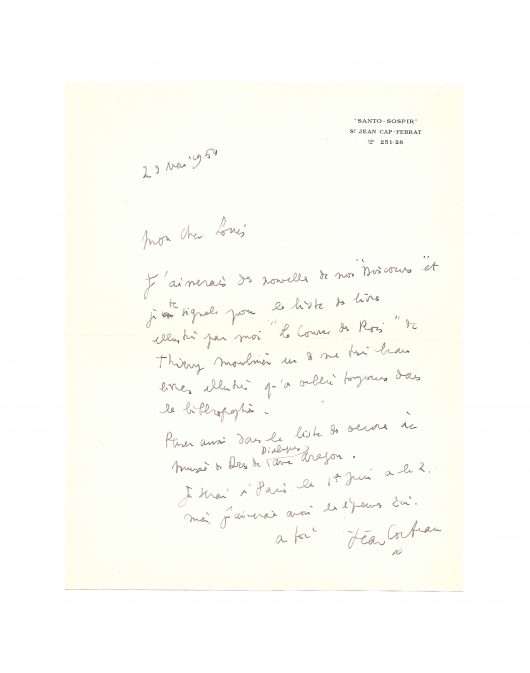 "SANTO-SOSPIR"
St JEAN CAP-FERRAT
251-26
mon cher Louis
J'aimerais des nouvelles de nos "Discours" et
je te signale pour la liste de livres
illustrés par moi "La Course des Rois" de
Thierry Maulnier un de mes très beaux
livres illustrés qu'on oublie toujours dans
la bibliographie.
aussi dans la liste de
Musée de Dialogues avec Aragon.
Je serai à Paris le 1er Juin
mais j'aimerais avoir les épreuves ici.
a toi Jean Cocteau